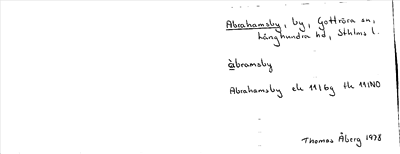 Abrahamsby, by, Gottröra sn,
Långhundra hd, Sthlms l.
àbramsby
Abrahamsby ek 11I6g tk 11INO
Thomas Åberg 1978